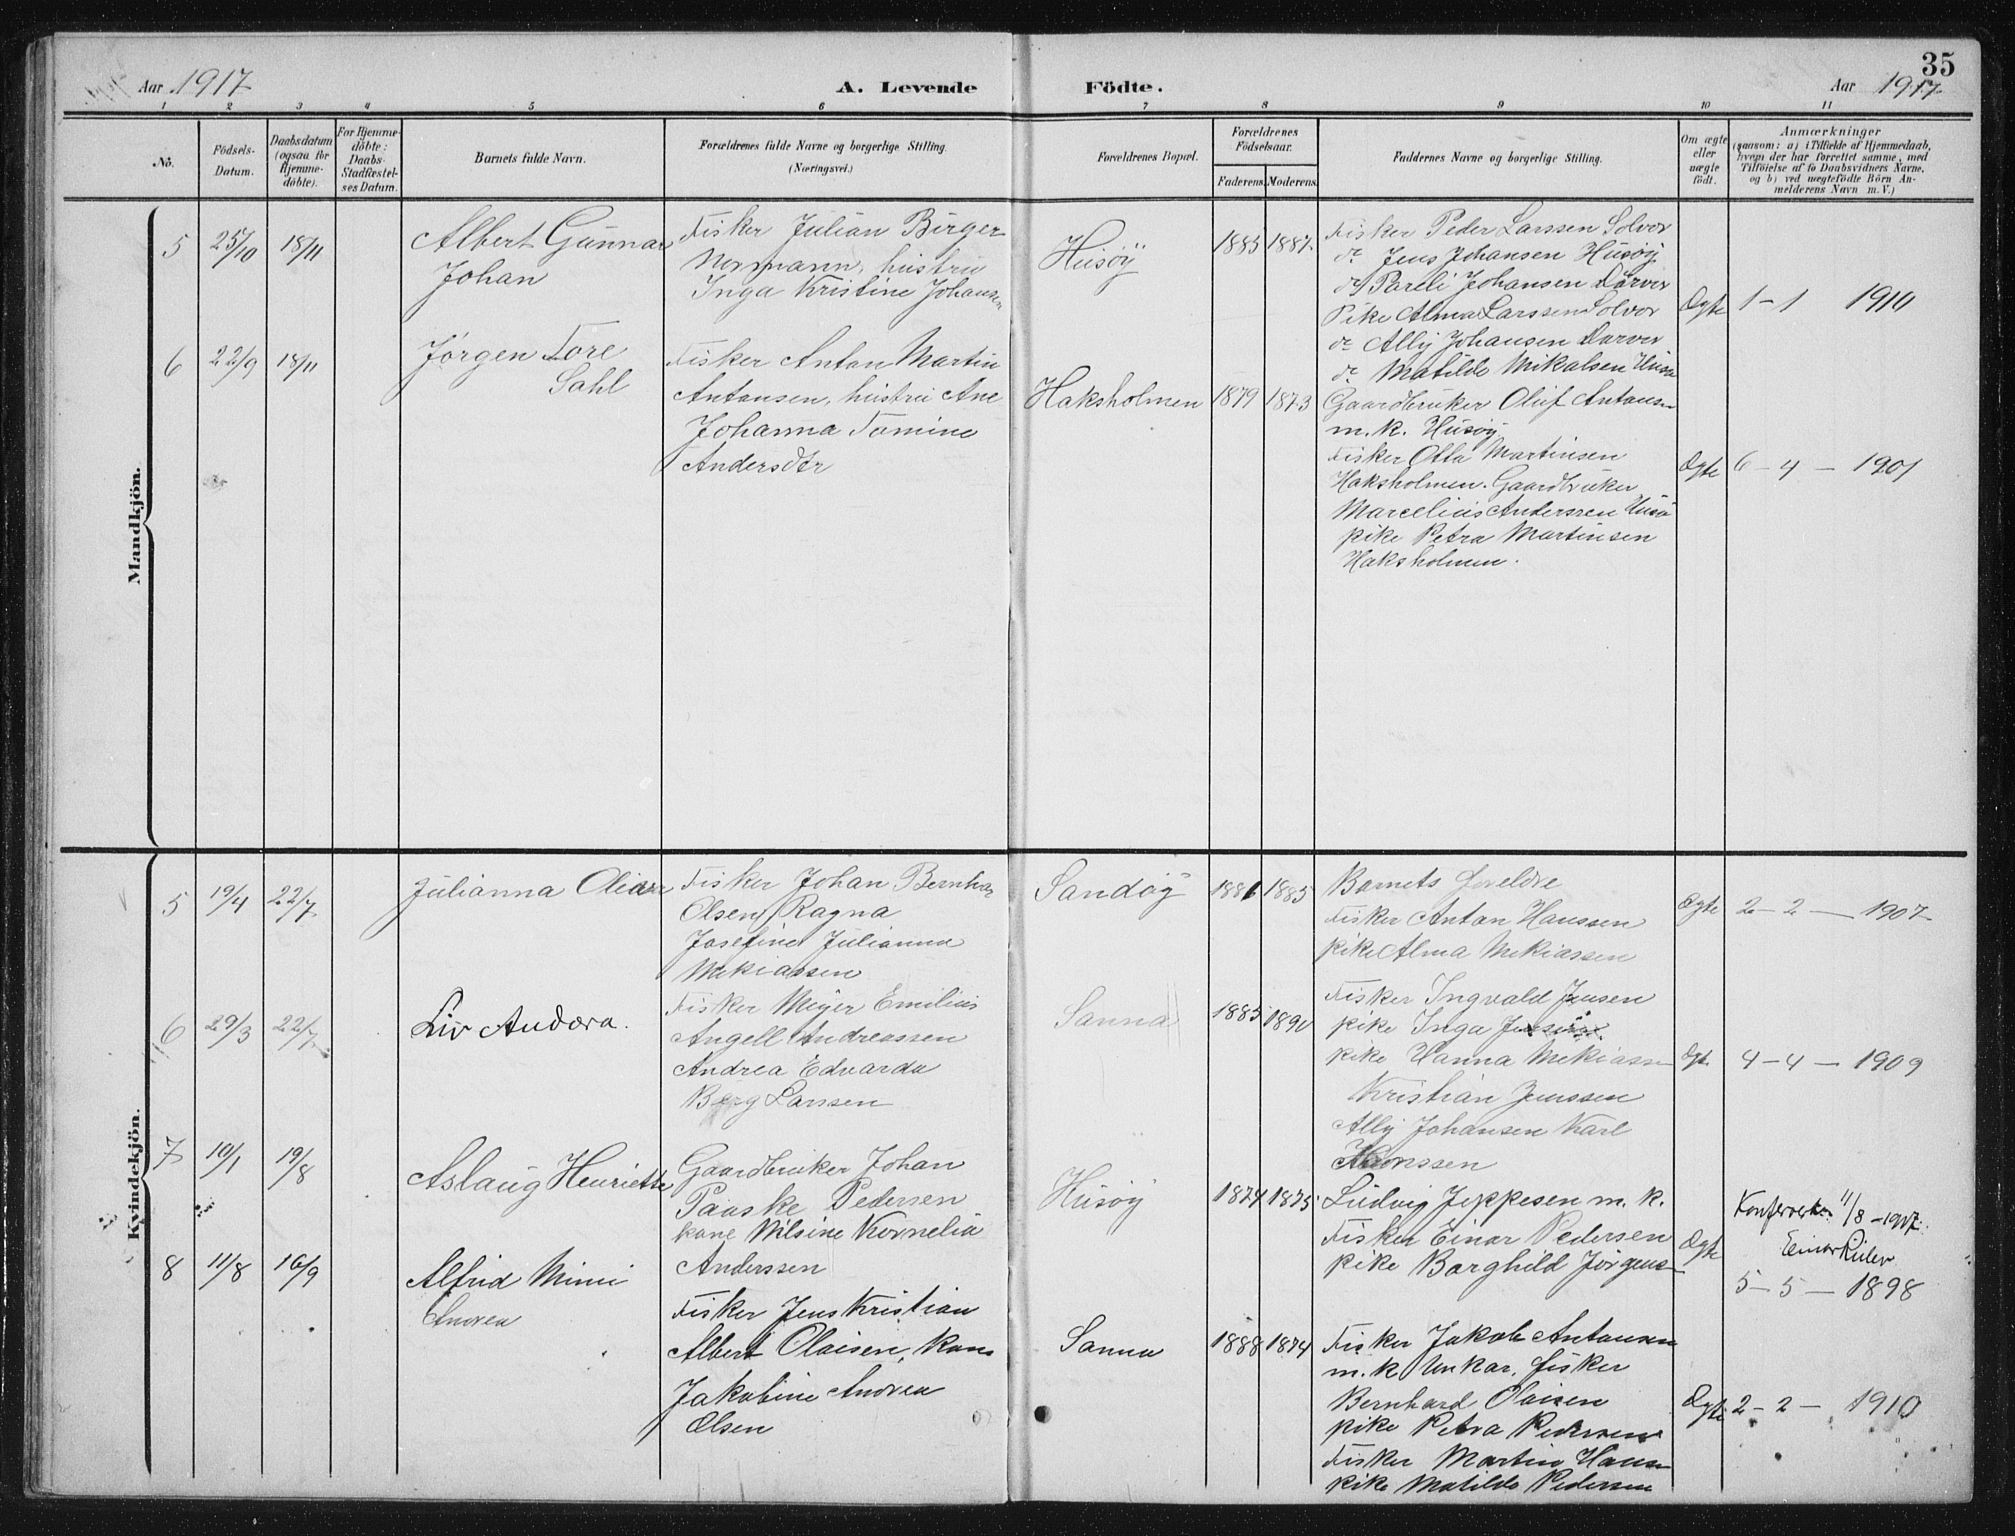 35
Aar 1917
A. Levende
Födte.
Aar 1917
1 2 3 4 5 6 7 8 9 10 11
No.
Födsels-
Datum.
Daabsdatum
(ogsaa for
Hjemme-
döbte).
For Hjemme-
döbte:
Daabs-
Stadfæstel-
ses Datum.
Barnets fulde Navn.
Forældrenes fulde Navne og borgerlige Stilling.
(Næringsvei.)
Forældrenes Bopæl.
Forældrenes
Födselsaar.
Faderens. Moderens.
Faddernes Navne og borgerlige Stilling.
Om ægte
eller
uægte
födt.
Anmærkninger
(saasom: a) i Tilfælde af Hjemmedaab,
hvem der har forrettet samme, med
Tilföielse af to Daabsvidners Navne,
og b) ved uægtefödte Börn An-
melderens Navn m. V.)
Mandkjön.
5 25/10 18/11
Albert Gunnar
Johan
Fisker Julian Birger
Normann, hustru
Inga Kristine Johansen
Husöy
1885 1887
Fisker Peder Larssen Solvær
do Jens Johansen Husöy
do Pareli Johansen Dørvær
Pike Alma Larssen Solvær
do Ally Johansen Dørvær
do Matilde Mikalsen Husø
Ægte
1-1 1910
6 22/9 18/11
Jørgen Tore
Sahl
Fisker Anton Martin
Antonsen, hustru Ane
Johanna Tomine
Andersdtr
Haksholmen
1879 1873
Gaardbruker Oluf Antonsen
m. k. Husøy
Fisker Otto Martinsen
Haksholmen. Gaardbruker
Marcelius Anderssen Husø
pike Petra Martinsen
Haksholmen.
Ægte
6-4-1901
Kvindekjön.
5 19/4 22/7
Julianna
Fisker Johan Bernha
Olsen, Ragna
Josefine Julianna
Mekiassen
Sandöy
1881 1885
Barnets foreldre
Fisker Anton Hanssen
pike Alma Mekiassen
Ægte
2-2-1907
6 29/3 22/7
Liv Andora.
Fisker Meyer Emilius
Angell Andreassen
Andrea Edvarda
Berg Larssen
Sanna
1885 1890
Fisker Ingvald Jensen
pike Inga
pike Hanna Mekiassen
Kristian Jenssen
Ally Johansen Karl
Ægt
4-4-1909
7 10/1 19/8
Aslaug Henriette
Gaardbruker Johan
Paaske Pedersen
kone Nilsine Kornelia
Anderssen
Husøy
1874 1875
Ludvig Jeppesen m. k.
Fisker Einar Pedersen
pike Borghild Jørgens
Ægte
11/8-1917.
Einar
5-5-1898
8 11/8 16/9
Alfrid Mimi
Andrea
Fisker Jens Kristian
Albert Olaisen, kone
Jakobine Andrea
Olsen
Sanna
1888 1874
Fisker Jakob Antonsen
m. k Unkar, fisker
Bernhard Olaisen
pike Petra Pedersen
Fisker Martin Hans
pike Matilde Pedersen
Ægte
2-2-1910